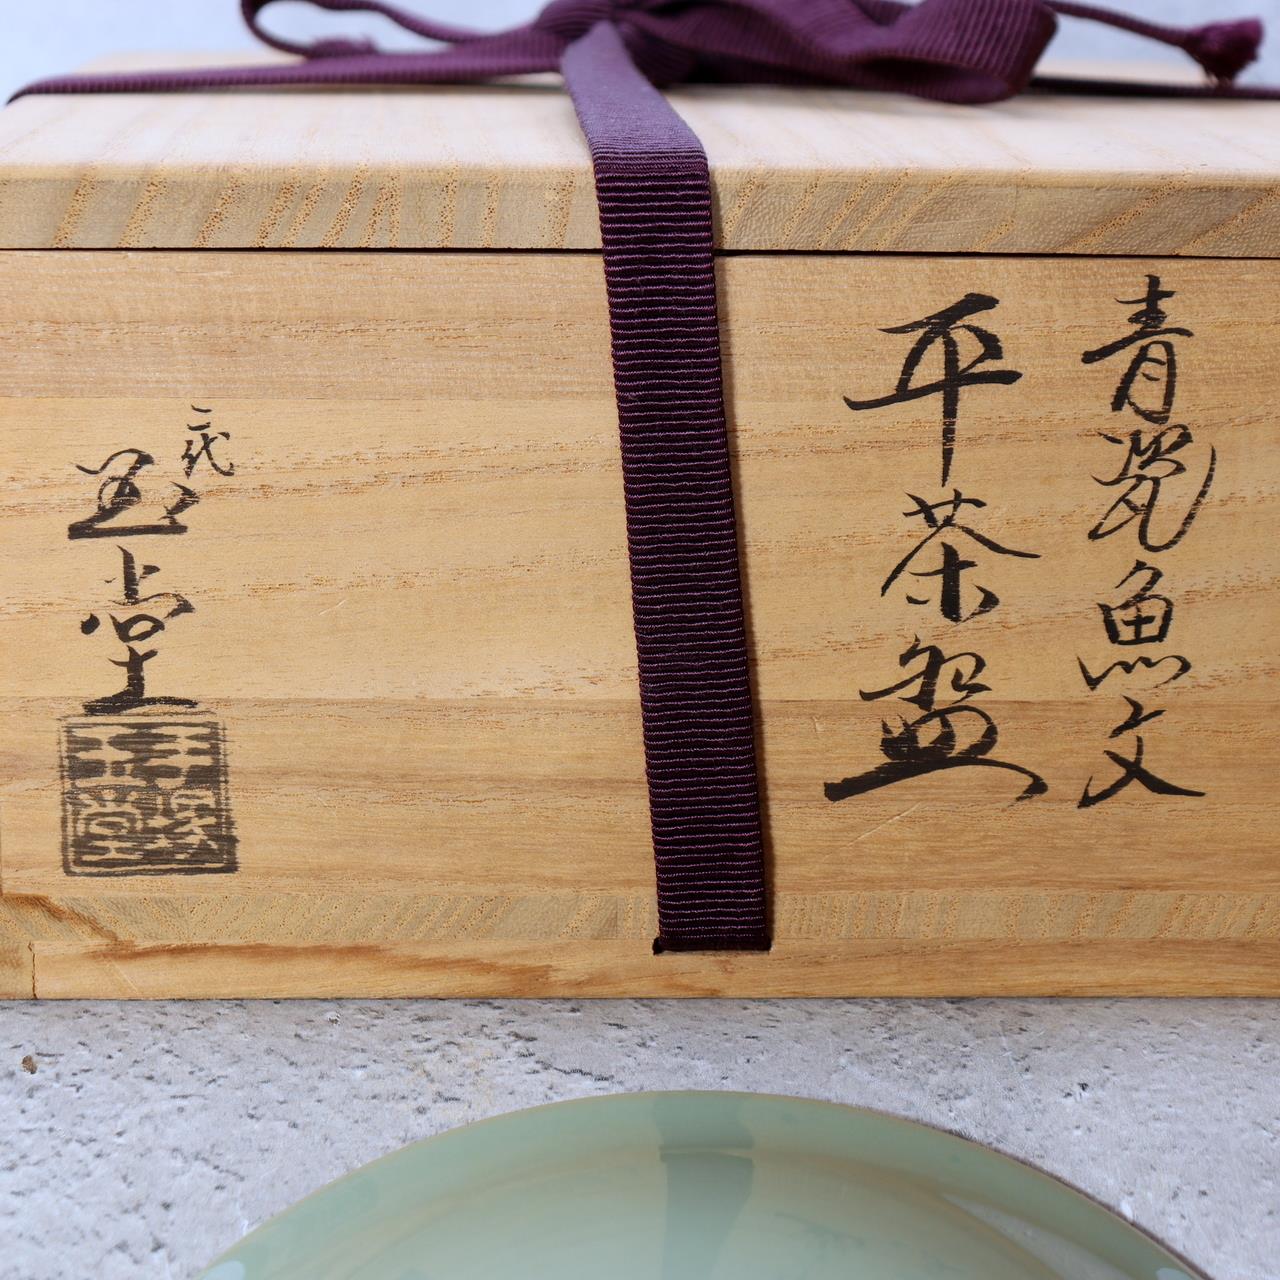 青瓷魚文
平茶盌
二代
玉堂